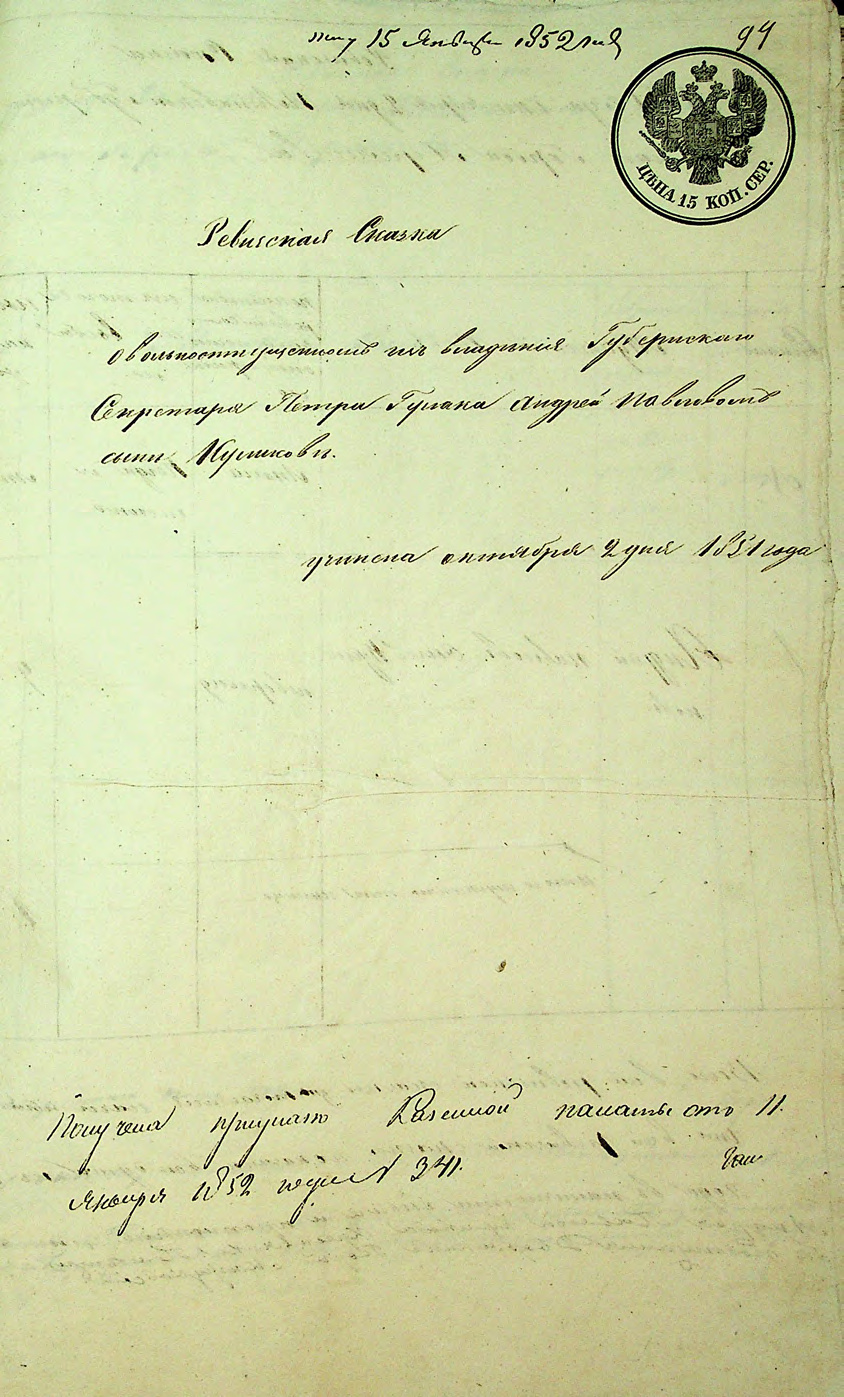 15 Января 1852 94
ЦѢНА 15 КОП. СЕР.
Ревизская Сказка
о вольноотпущенномъ изъ владѣнія Губернскаго
Секретаря Петра Гулака Андрей Павловомъ
сынѣ Куликовѣ.
учинена октября 2 дня 1851 года
Получена при указѣ Казенной палаты отъ 11.
Января 1852 года N 341.